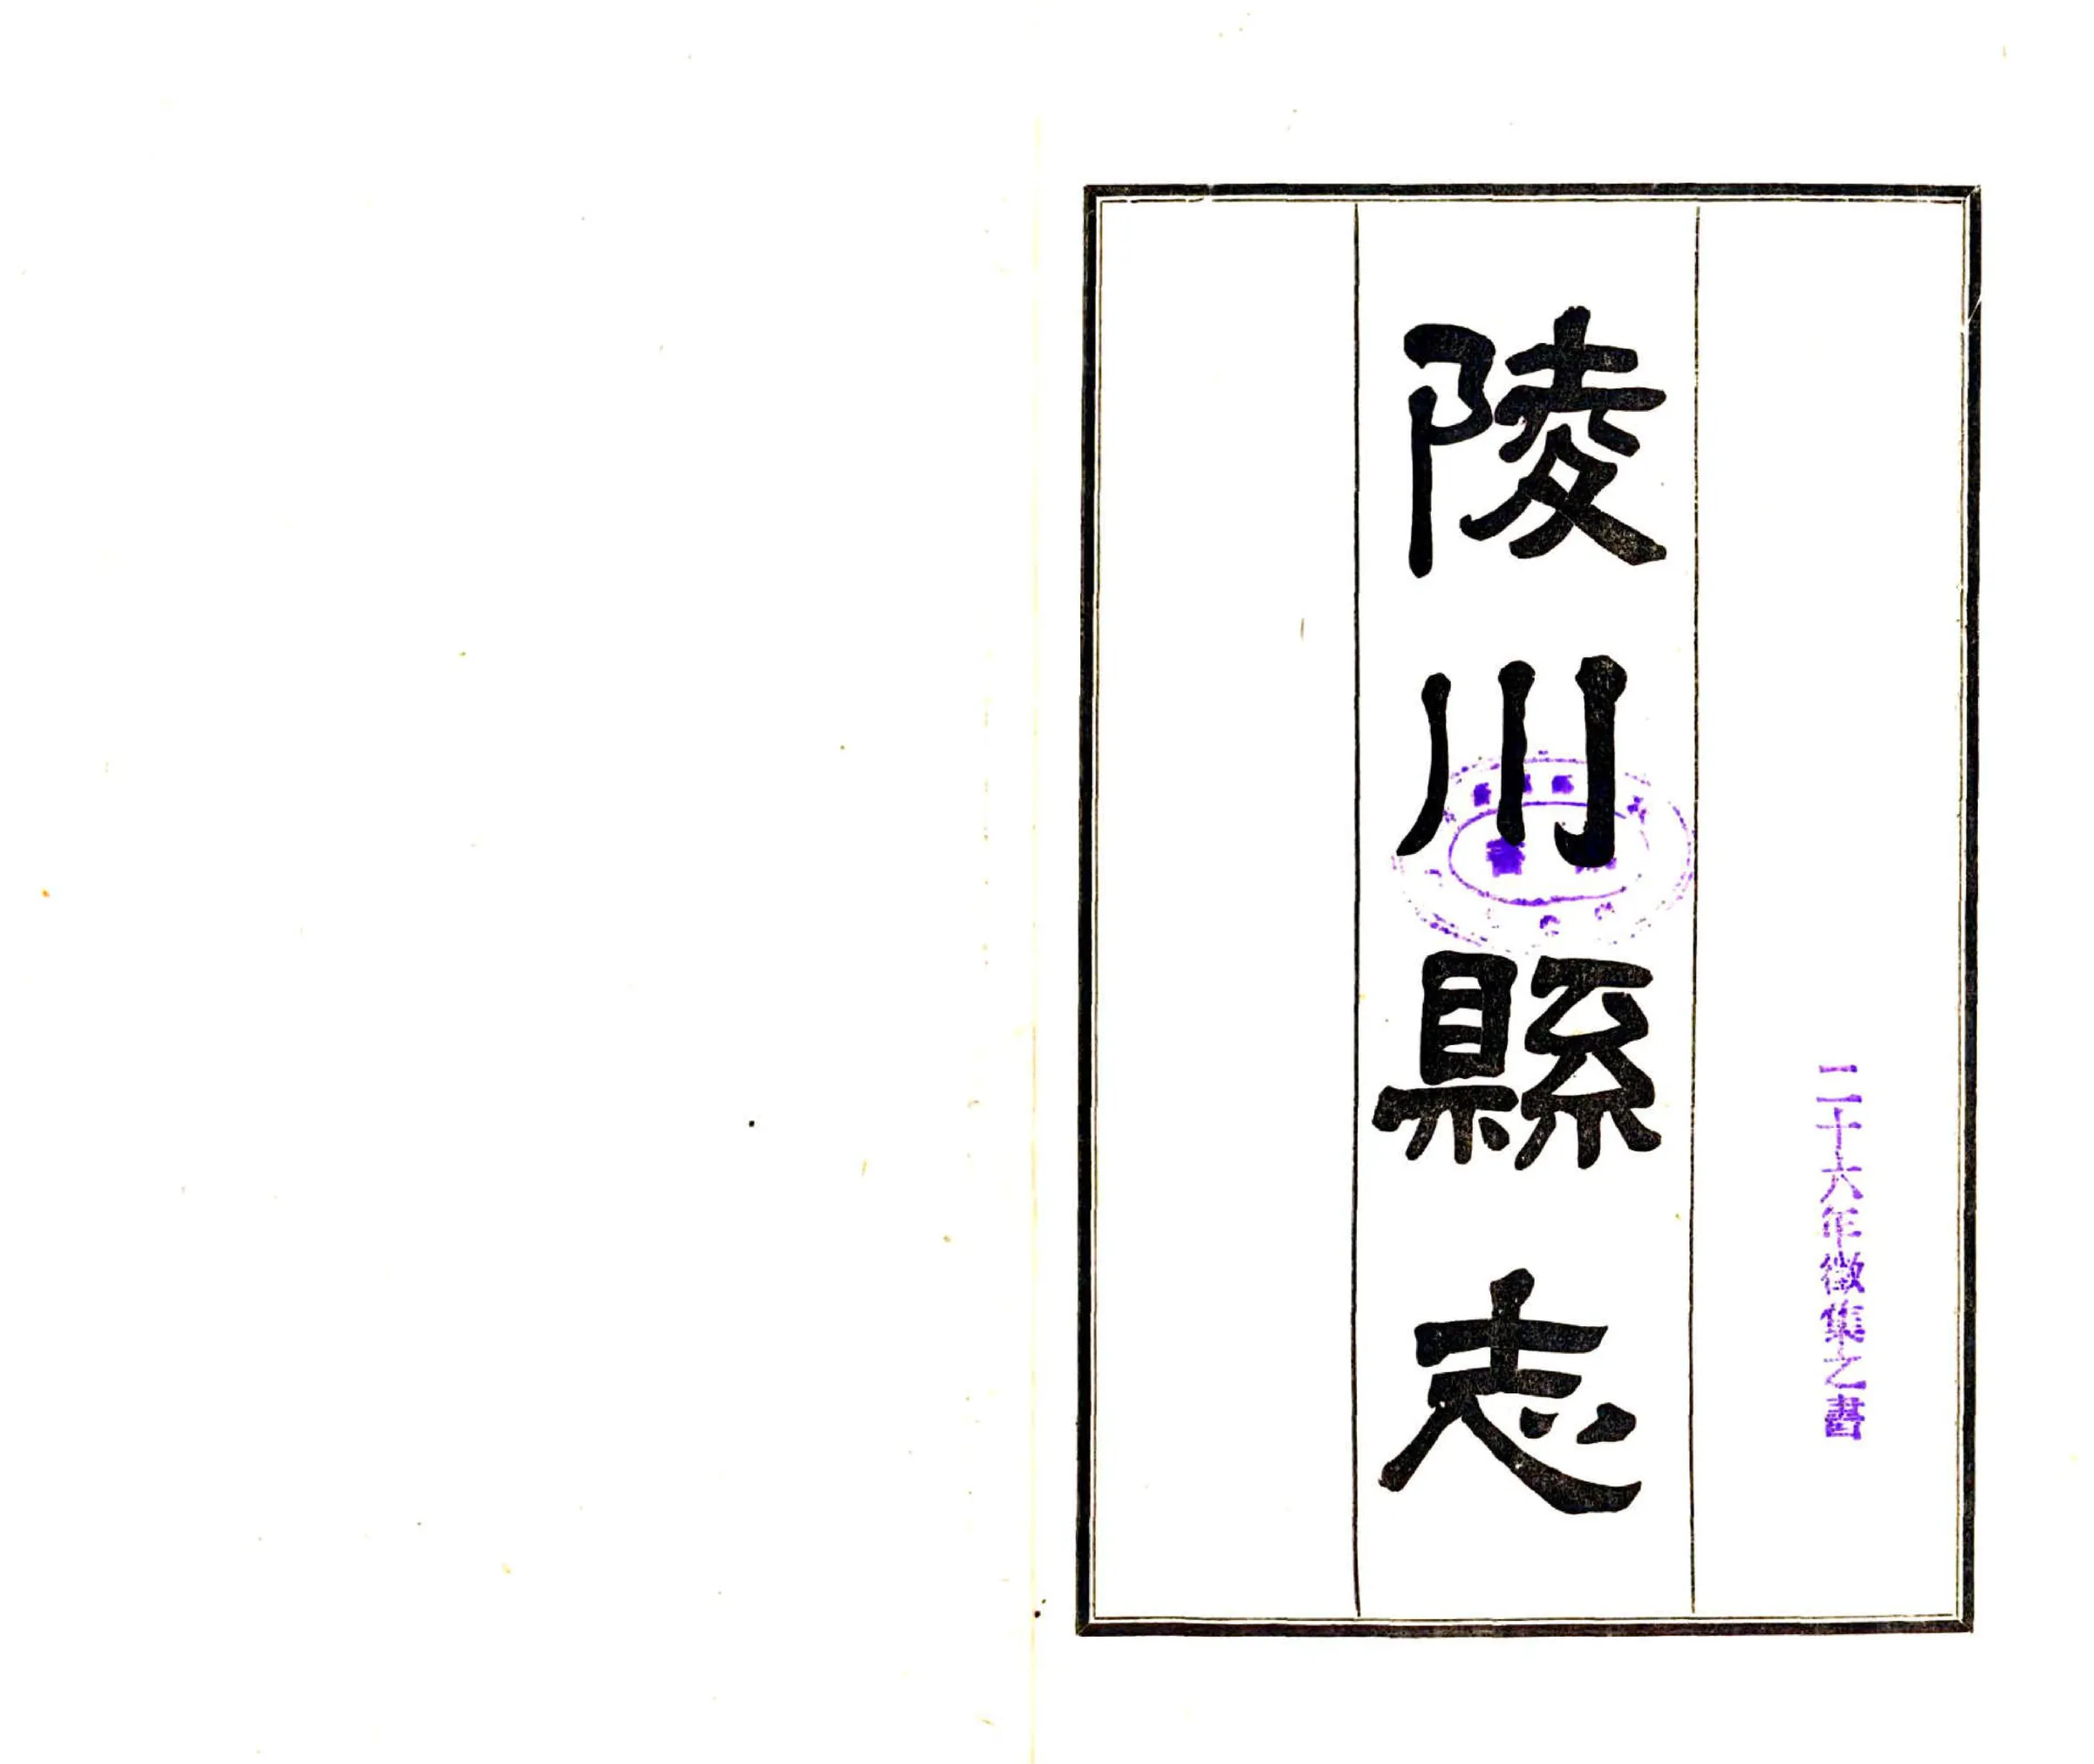 二十六年徵集之書
陵川縣志